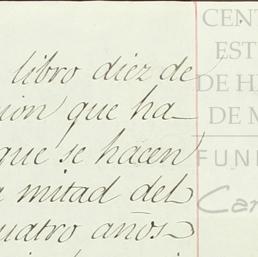 libro diez de
que ha-
que se hacen
mitad del
cuatro años
CEN
EST
DE H
DE M
FUN
Car